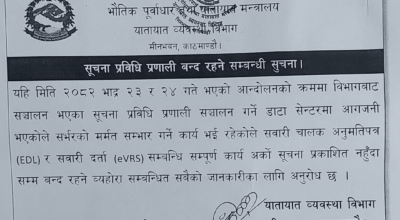 भौतिक पूर्वाधार तथा यातायात मन्त्रालय
यातायात व्यवस्था विभाग
मीनभवन, काठमाण्डौ।
सूचना प्रविधि प्रणाली बन्द रहने सम्बन्धी सुचना।
यहि मिति २०८२ भाद्र २३ र २४ गते भएको आन्दोलनको क्रममा विभागबाट
सञ्चालन भएका सूचना प्रविधि प्रणाली सञ्चालन गर्ने डाटा सेन्टरमा आगजनी
भएकोले सर्भरको मर्मत सम्भार गर्ने कार्य भई रहेकोले सवारी चालक अनुमतिपत्र
(EDL) र सवारी दर्ता (eVRS) सम्बन्धि सम्पूर्ण कार्य अर्को सूचना प्रकाशित नहुँदा
सम्म बन्द रहने व्यहोरा सम्बन्धित सवैको जानकारीका लागि अनुरोध छ ।
यातायात व्यवस्था विभाग